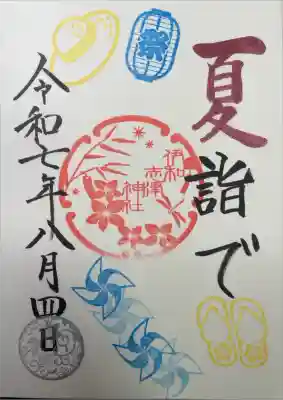 夏詣で
祭
伊和志津
神社
令和七年八月四日